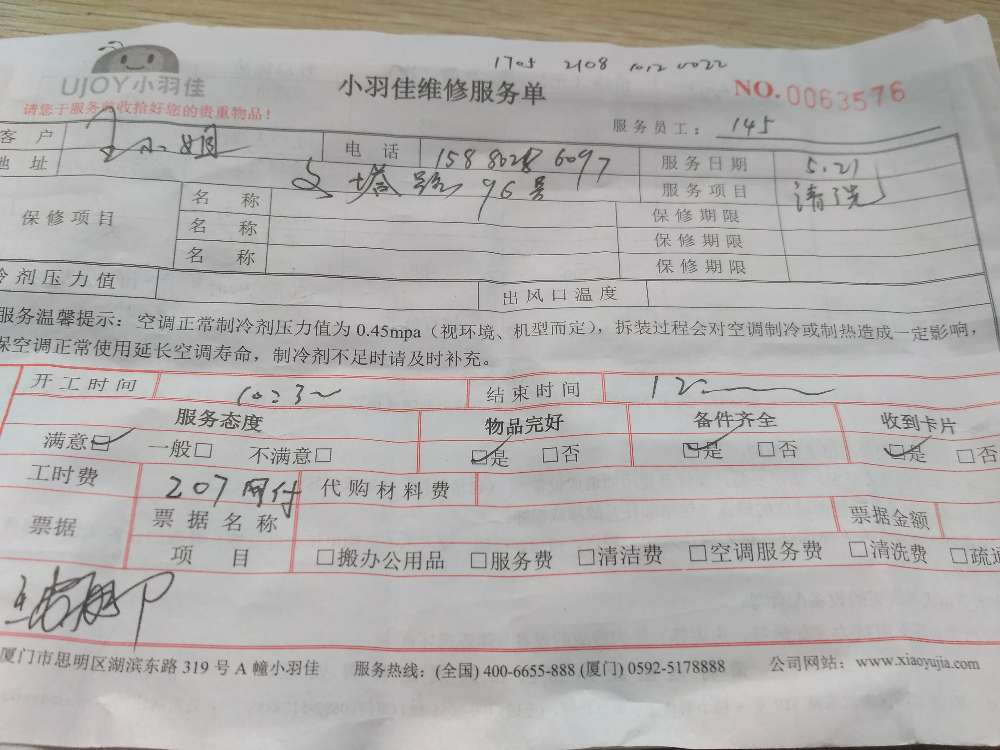 1705 2108 1012 0022
UJOY小羽佳
小羽佳维修服务单
NO.0063576
请您于服务前收拾好您的贵重物品!
服务员工: 145
客 户 王小姐 电 话 158 8028 6097 服务日期 5.21
地 址 文塔路96号 服务项目 清洗
保修项目 名 称 保修期限
名 称 保修期限
名 称 保修期限
冷剂压力值 出风口温度
服务温馨提示：空调正常制冷剂压力值为 0.45mpa（视环境、机型而定），拆装过程会对空调制冷或制热造成一定影响，
保空调正常使用延长空调寿命，制冷剂不足时请及时补充。
开工时间 10:3 结束时间 12:
服务态度 物品完好 备件齐全 收到卡片
满意☑ 一般□ 不满意□ ☑是 □否 ☑是 □否 ☑是 □否
工时费 207网付 代购材料费
票据 票据名称 票据金额
项 目 □搬办公用品 □服务费 □清洁费 □空调服务费 □清洗费 □疏通
厦门市思明区湖滨东路 319 号 A 幢小羽佳 服务热线：(全国) 400-6655-888 (厦门) 0592-5178888 公司网站：www.xiaoyujia.com